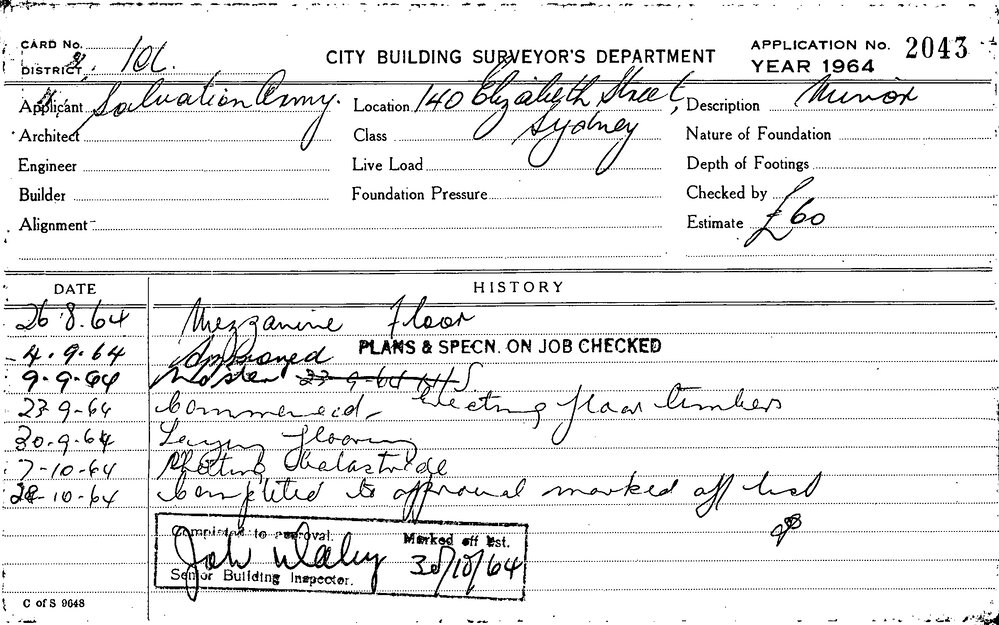 CARD No.
DISTRICT 2, 10C.
CITY BUILDING SURVEYOR'S DEPARTMENT
APPLICATION No. 2043
YEAR 1964
Applicant Salvation Army.
Location 140 Elizabeth Street,
Sydney
Description Minor
Architect
Class
Nature of Foundation
Engineer
Live Load
Depth of Footings
Builder
Foundation Pressure
Checked by
Alignment
Estimate £60
DATE
HISTORY
26.8.64 Mezzanine Floor
4.9.64 Approved PLANS & SPECN. ON JOB CHECKED
9.9.64
23.9-64 Commenced - Erecting floor timbers
30.9.64 Laying flooring
7-10-64 balastrade
28-10-64 Completed to approval marked off list
Completed to approval. Marked off list.
30/10/64
Senior Building Inspector.
C of S 9648